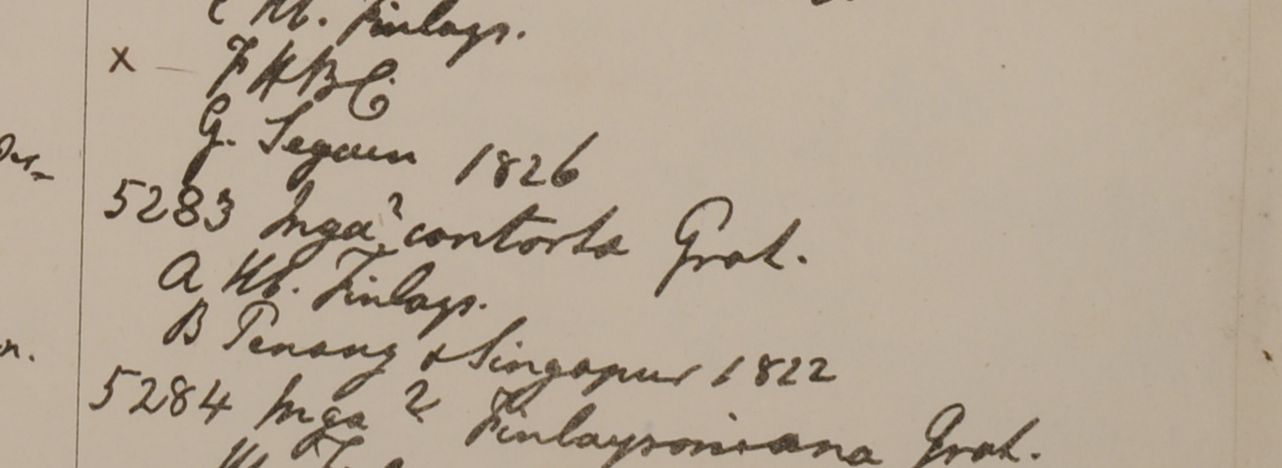 Hb. Finlays.
x — F HBC
G. Segaen 1826
5283 Inga? contorta Grah.
A Hb. Finlays.
B Penang & Singapur 1822
5284 Inga? Finlaysoniana Grah.